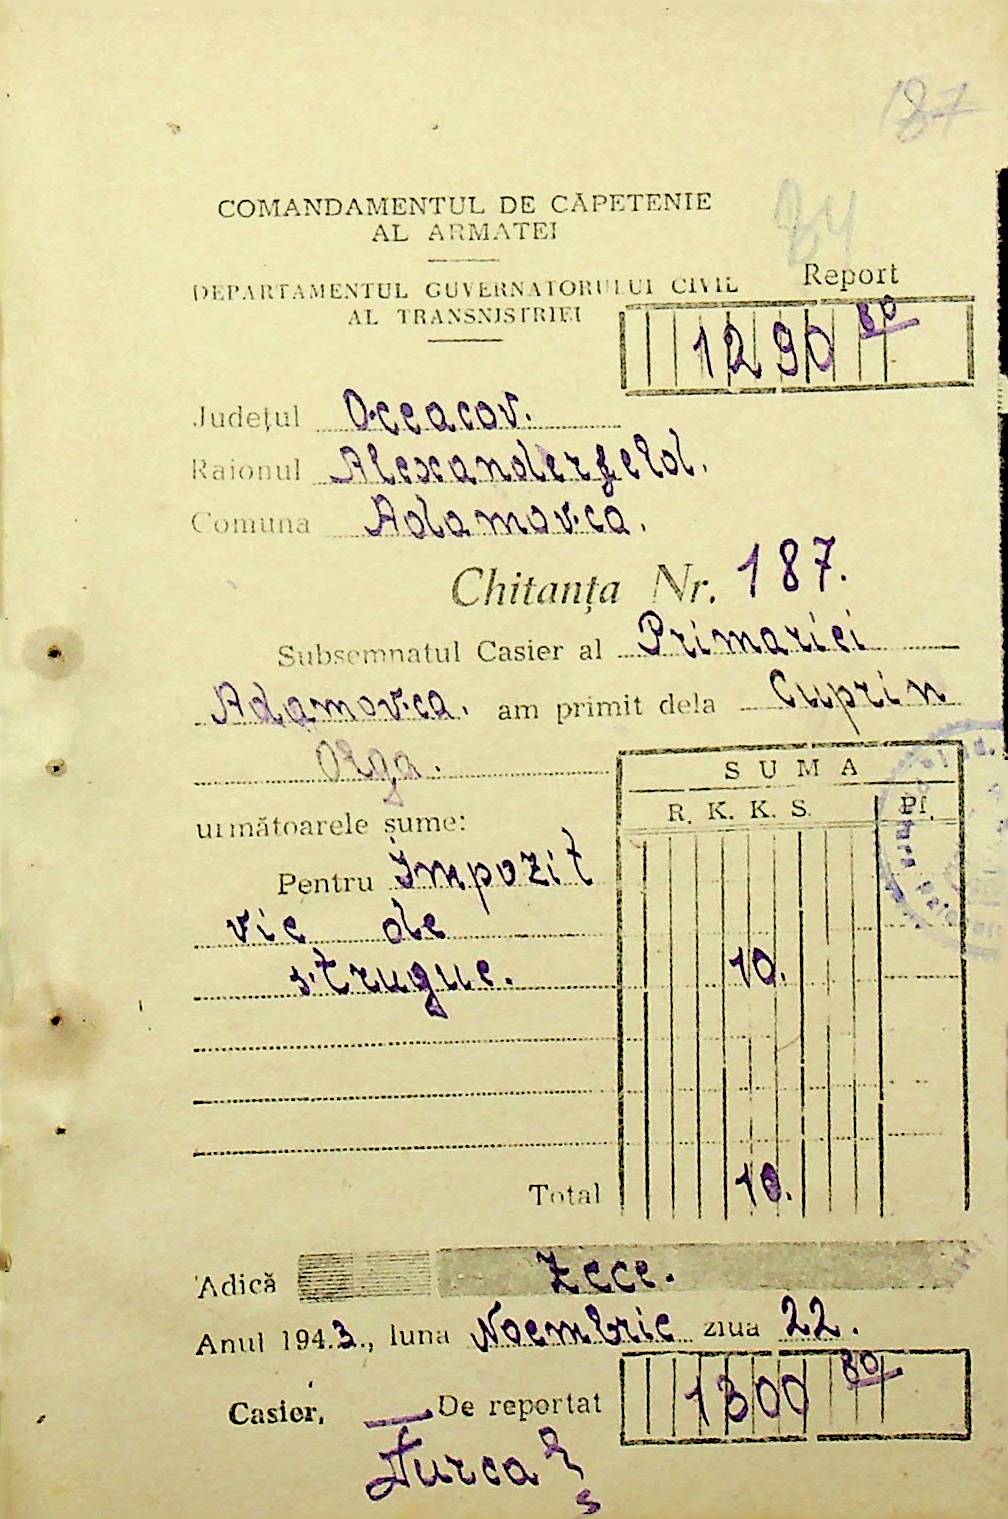 187
84
COMANDAMENTUL DE CĂPETENIE
AL ARMATEI
DEPARTAMENTUL GUVERNATORULUI CIVIL
AL TRANSNISTRIEI
Report
1290 80
Județul Oceacov.
Raionul Alexanderfeld.
Comuna Adamovca.
Chitanța Nr. 187.
Subsemnatul Casier al Primariei
Adamovca. am primit dela Cuprin
Olga.
SUMA
R. K. K. S. Pf.
următoarele sume:
Pentru Impozit
vie de
strugue. 10.
Total 10.
Adică Zece.
Anul 1943., luna Noembrie ziua 22.
Casier, De reportat 1300 80